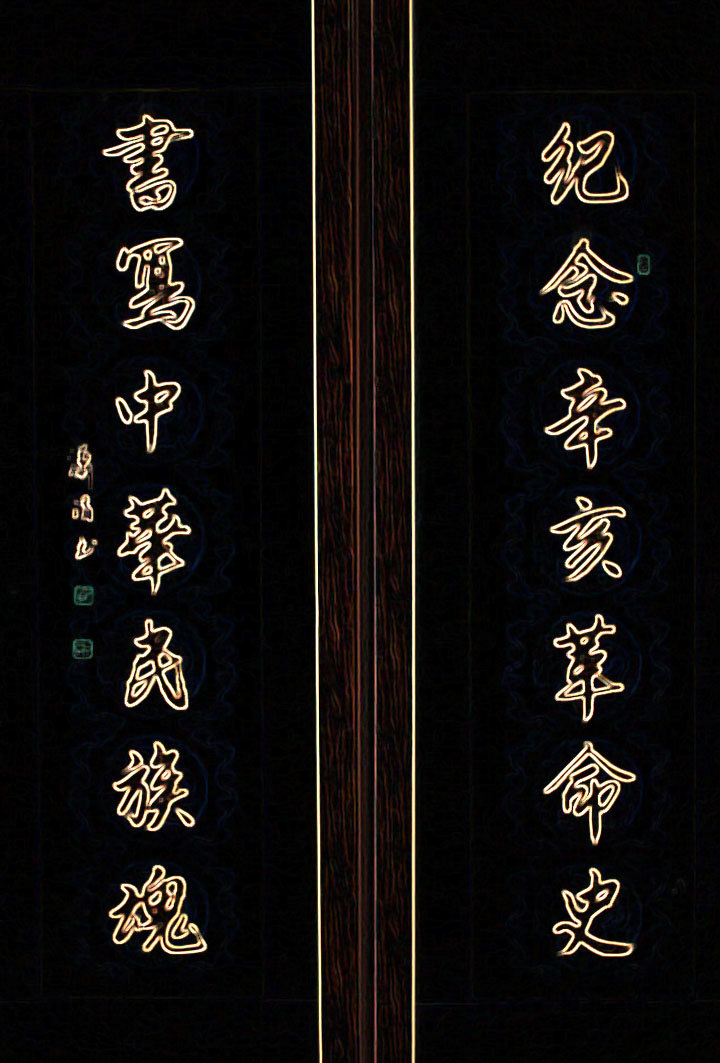 纪念辛亥革命史
書寫中華民族魂